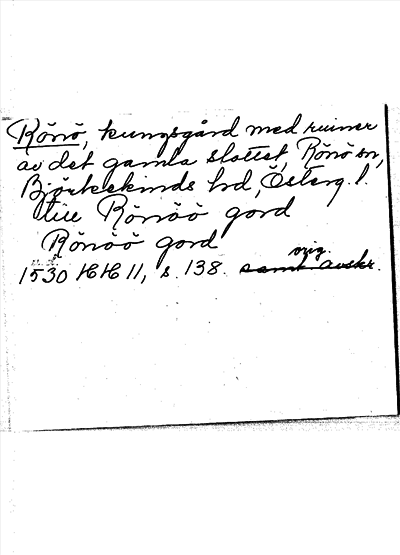 Rönö, kungsgård med ruiner
av det gamla slottet, Rönö sn,
Björkekinds hd, Österg. l.
till Rönöö gord
Rönöö gord
orig.
1530 HH 11, s. 138. samt avskr.